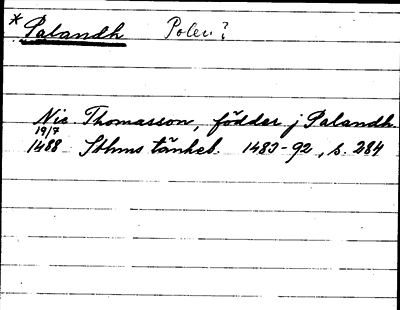 * Palandh Polen?
Nic Thomasson, födder j Palandh.
19/7
1488 Sthms tänkeb. 1483-92, s. 284